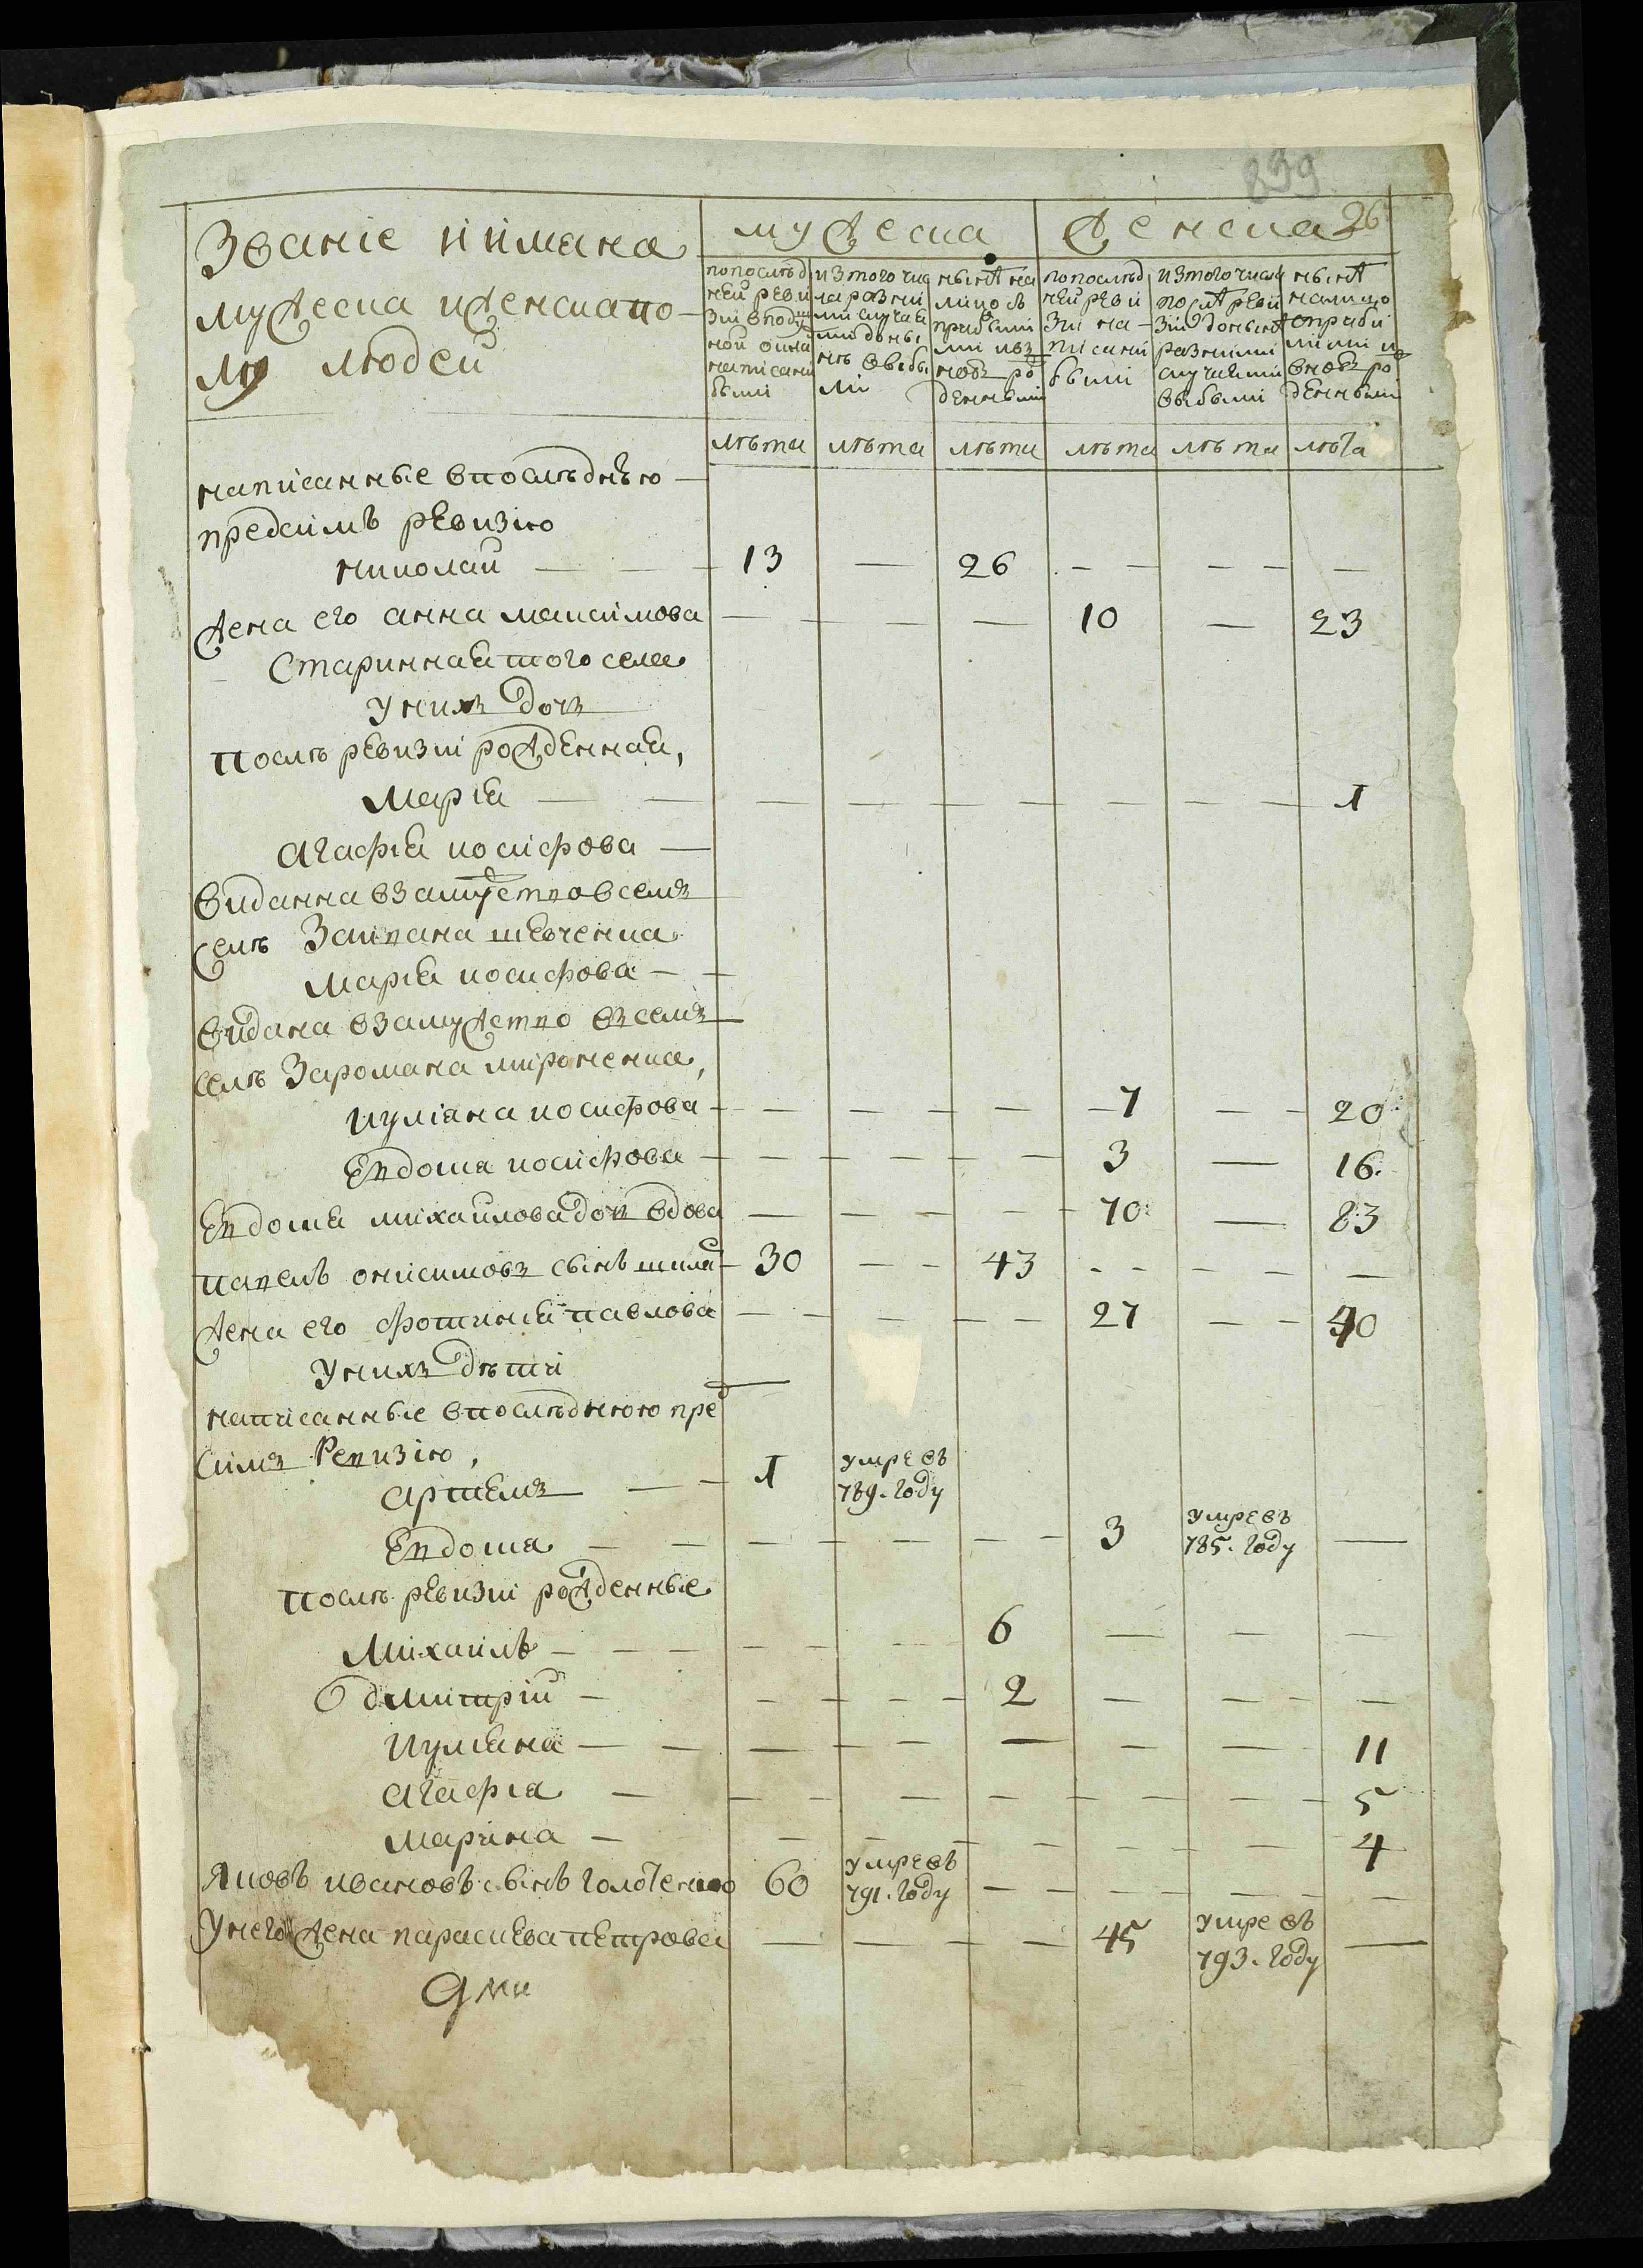 839
26
Званіе иимяна
мужеска иженскапо
лу людей
мужеска
женска
попослѣд
ней реви
зіи вподу
ной
написани
были
изтого чис
ла разни
ми случая
ми доны
нѣ выбы
ли
нынѣ на
лицо съ
прибыли
ми
новъ ро
денными
попослѣд
ней реви
зіи на
писани
были
изтого числа
послѣ реви
зіи донынѣ
разними
случаями
выбыли
нынѣ
налицо
сприбы
лими и
вновъ ро
денными
лѣта лѣта лѣта лѣта лѣта лѣта
написанные впослѣднѣю
предсимъ ревизію
николай — — 13 — 26 — — — — —
жена его анна максимова — — — — 10 — 23
Стариннаятого села
унихъ дочъ
послѣ ревизіи рожденная,
марія — — — — — — — — — — 1
агафія иосифова —
видана взамужство в семъ
селѣ Заивана шевченка
марія иосифова — —
видана взамужство въ семъ
селѣ Заромана мироненка,
иуліяна иосифова — — — — — 7 — — 20
Евдокия иосифова — — — — — 3 — 16.
Евдокия михайлова дочъ вдова — — — — 70 — 83
павелъ онисимовъ сынъ шила 30 — — 43 — — — — —
жена его фотинія павлова — — — — — 27 — — 40
унихъ дѣти
написанные впослѣднюю пред
симъ Ревизію,
артемъ — — 1 умре въ
789. году
Евдокия — — — — — — 3 умре въ
785. году —
послѣ ревизіи рожденные
михаилъ — — — — — — 6 — — —
димитрій — — — — — 2 — — — —
иуліяна — — — — — — — — 11
агафія — — — — — — — — 5
марина — — — — — — — 4
Яковъ ивановъ сынъ 60 умре въ
791. году — — — — — —
унего жена параскева петрова — — — — 45 умре въ
793. году —